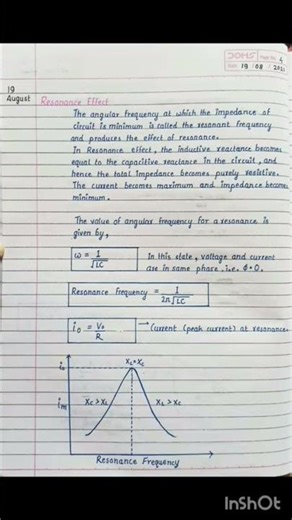 DOMS Page No. 4
Date 19 / 08 / 2021
19
August
Resonance Effect
The angular frequency at which the impedance of
circuit is minimum is called the resonant frequency
and produces the effect of resonance.
In Resonance effect, the inductive reactance becomes
equal to the capacitive reactance in the circuit, and
hence the total impedance becomes purely resistive.
The current becomes maximum and impedance become
minimum.
The value of angular frequency for a resonance is
given by,
ω = 1/√LC In this state, voltage and current are in same phase i.e. Φ=0.
Resonance Frequency = 1/2π√LC
i₀ = V₀/R → Current (peak current) at resonance.
XL=XC
i₀
im
XC > XL
XL > XC
Resonance Frequency
InShOt